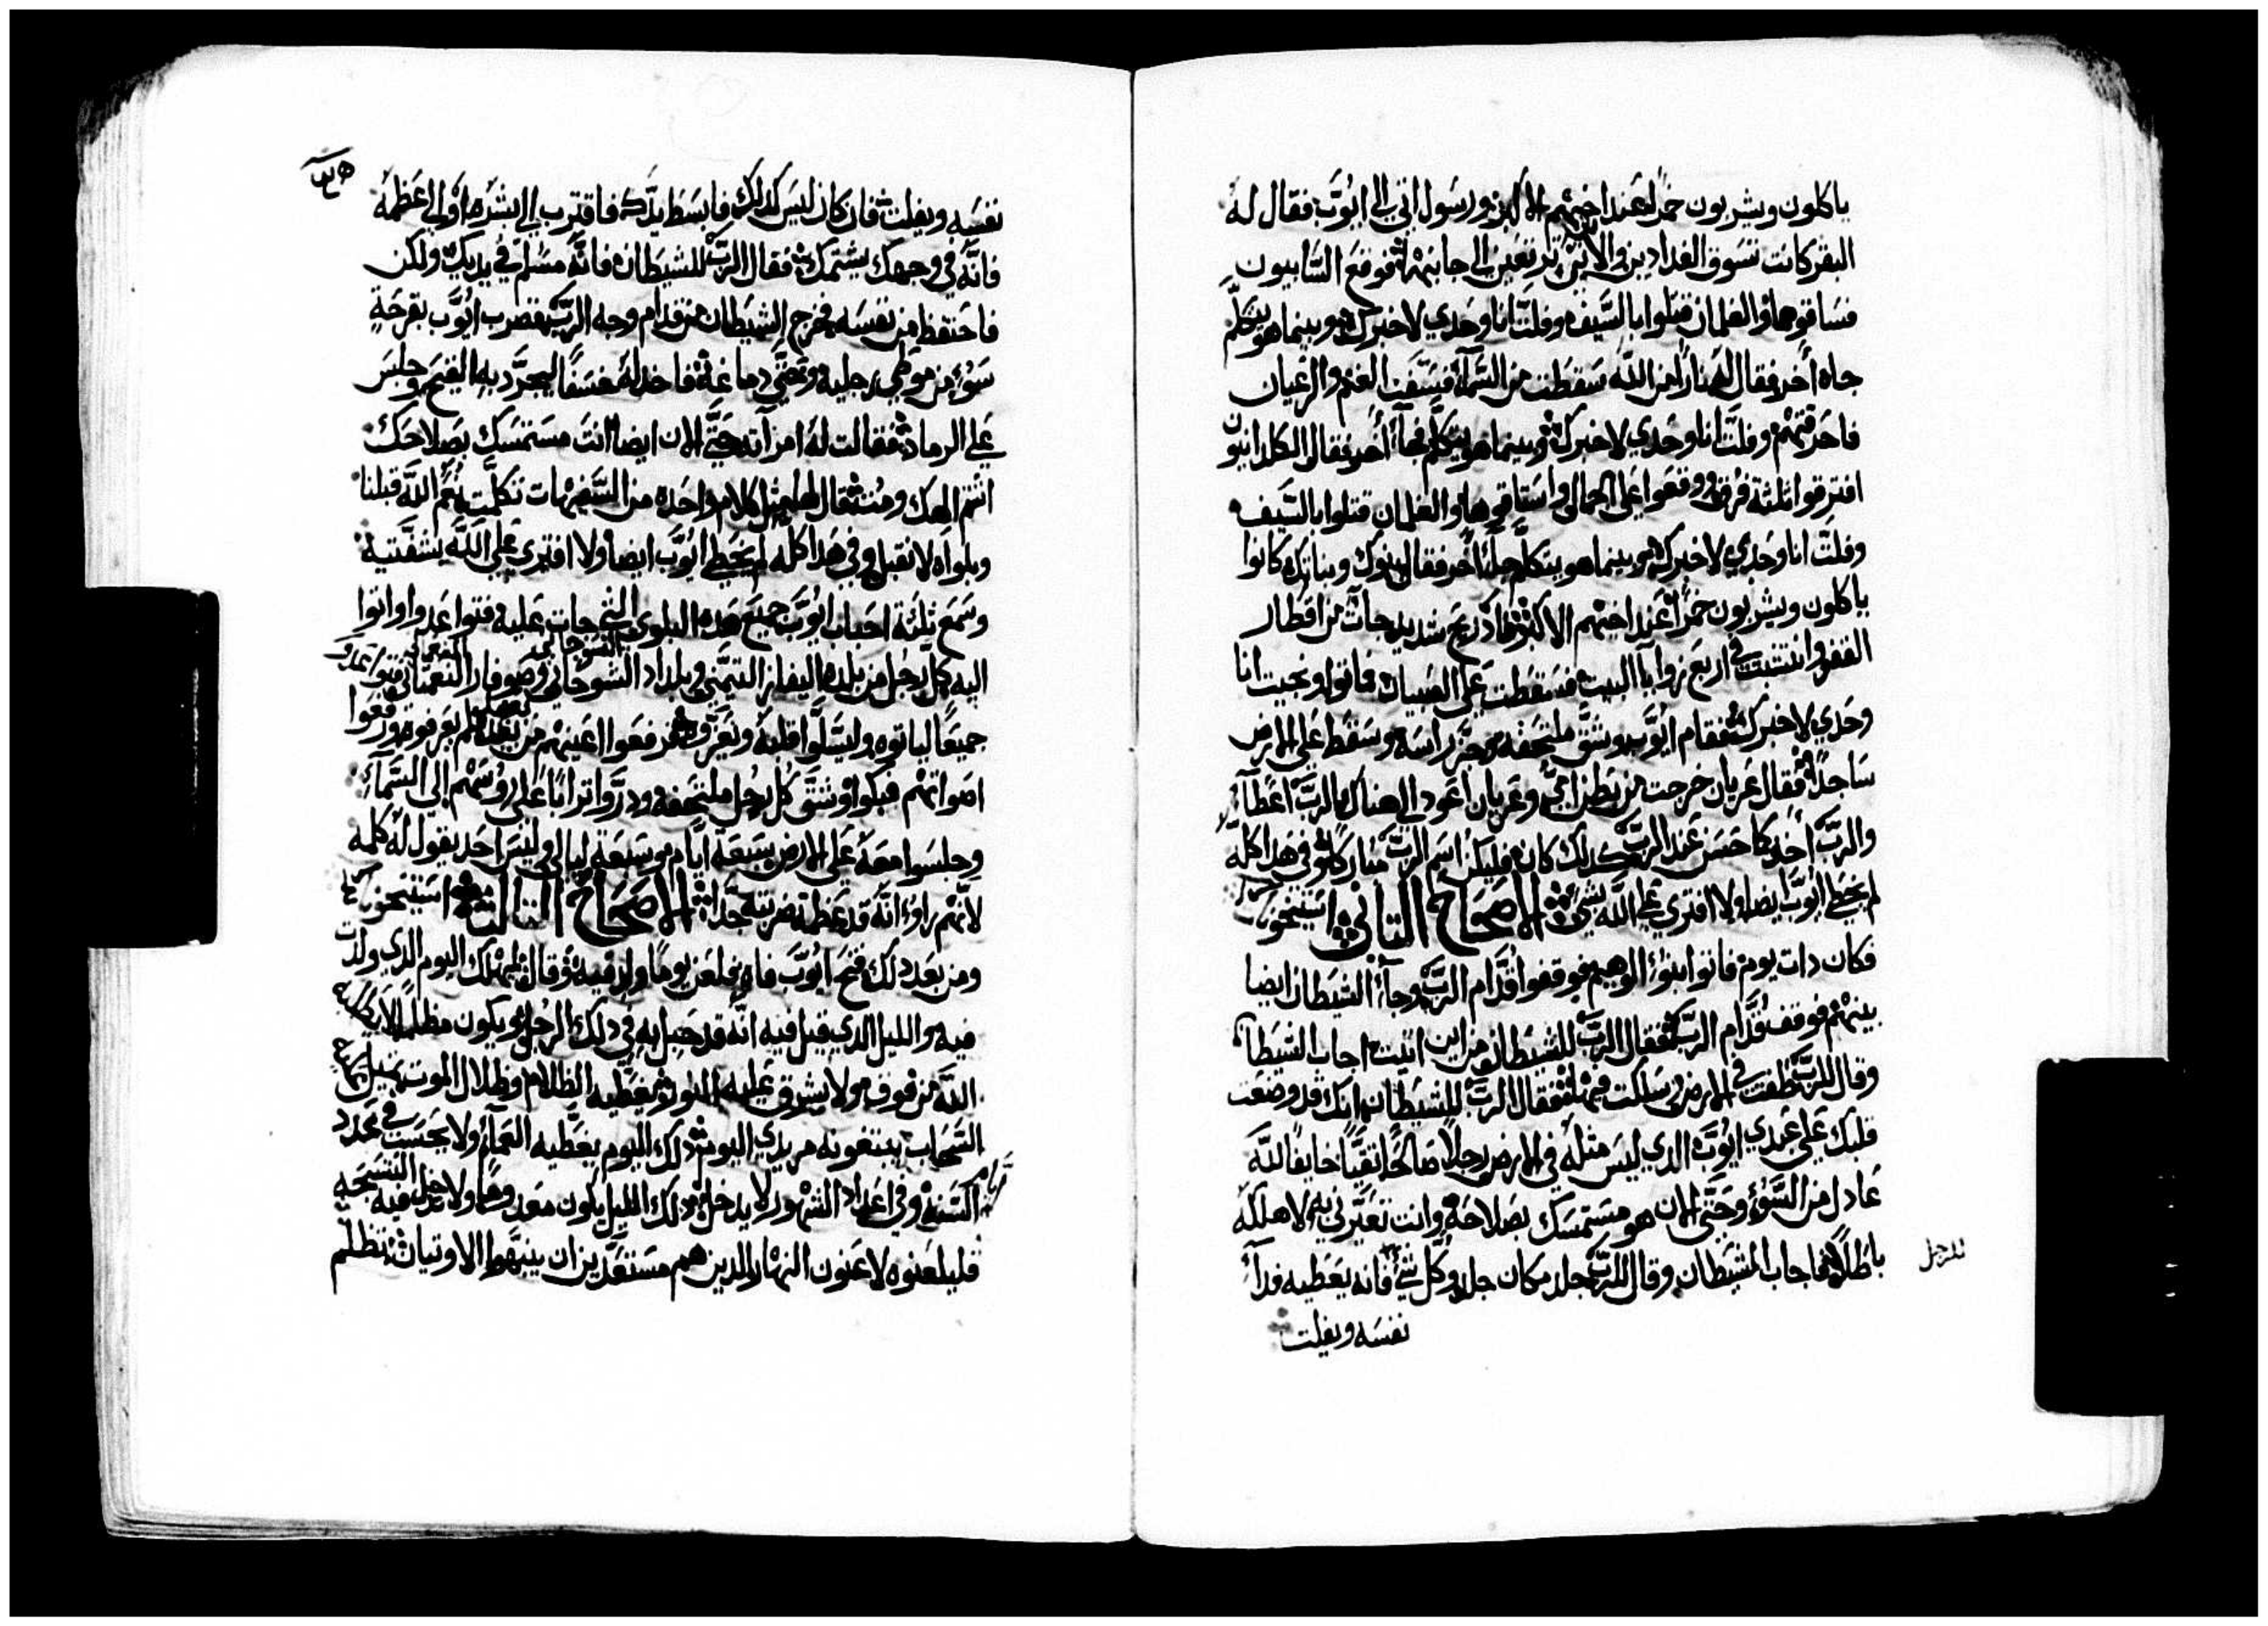 ياكلون ويشربون خمرًا عند اخيهم الاكبر ورسول اتي الي ايوب فقال له
البقر كانت تسوق الفدادين والاتن ترتعين الي جانبهم فوقع السابيون
فساقوها والغلمان قتلوا بالسيف وفلت انا وحدي لاخبرك وبينما هو يتكلم
جاه اخر فقال له نارًا من الله سقطت من السماء فسفت الغنم والرعيان
فاحرقتهم وفلت انا وحدي لاخبرك وبينما هو يتكلم فجاء اخر فقال الكلدانيون
افترقوا ثلثة فرق ووقعوا علي الجمال واستاقوها والغلمان قتلوا بالسيف
وفلت انا وحدي لاخبرك وبينما هو يتكلم جاء اخر فقال بنوك وبناتك كانوا
ياكلون ويشربون خمرًا عند اخيهم الاكبر فاذ ريح شديد جات من اقطار
القفر وانتشبت في اربع زوايا البيت فسقطت علي الصبيان فماتوا ونجيت انا
وحدي لاخبرك فقام ايوب وشق ملتحفه وجز راسه وسقط علي الارض
ساجدًا فقال عريان خرجت من بطن امي وعريان اعود الي هناك الرب اعطا
والرب اخد كما حسن عند الرب كدلك كان فليكن اسم الرب مباركًا وفي هدا كله
لم يخطي ايوب ايضا ولا افتري علي الله بشي الاصحاح التاني
فكان دات يوم فاتوا بنو الوهيم فوقفوا قدام الرب وجاء الشيطان ايضا
بينهم فوقف قدام الرب فقال الرب للشيطان من اين اتيت اجاب الشيطا
وقال للرب طفت في الارض سلكت فيها فقال الرب للشيطان انك قد وضعت
قلبك علي عبدي ايوب الدي ليس مثله في الارض رجلا صالحًا نقيًا خايفًا الله
عادل من السوء وحتي الان هو مستمسك بصلاحه وانت تعيرني به لاهلكه
باطلًا فاجاب الشيطان وقال للرب جلد مكان جلد وكل شي فانه يعطيه فدآء
نفسه ويفلت
نفسه ويفلت فان كان ليس كدلك فابسط يدك فاقترب الي بشره او الي اعظمه
فانه في وجهك يشتمك فقال الرب للشيطان فانه مسلم في يديك ولكن
فاحتفظ من نفسه فخرج الشيطان من قدام وجه الرب فضرب ايوب بقرحة
سوء من موطي رجليه وحتي دماغه فاخد له خسفًا ليجرد به القيح وجلس
علي الرماد فقالت له امراته حتي الان ايضا انت مستمسك بصلاحك
اشتم الهك ومت فقال لها مثل كلام واحده من السفيهات تكلمت نعم الله قبلنا
وبلواه لا نقبل وفي هدا كله لم يخطي ايوب ايضا ولا افتري علي الله بشفتيه
وسمع ثلثة احباب ايوب جميع هده البلوي التي جات عليه فتواعدوا واتوا
اليه كل رجل من بلده اليفاز التيمني وبلداد الشوحاني وصوفار النعماني فتواعدو
جميعًا لياتوه وليسلوا قلبه ويعزوه فرفعوا اعينهم من بعد فلم يعرفوه ورفعوا
اصواتهم فبكوا وشق كل رجل ملتحفه ودروا ترابًا علي روسهم الي السماء
وجلسوا معه علي الارض سبعة ايام وسبعة ليالي وليس احد يقول له كلمه
لانهم راوا انه قد عظمة ضربته جدا الاصحاح التالت
ومن بعد دلك فتح ايوب فاه فلعن يومًا ولد فيه وقال ليهلك اليوم الدي ولدت
فيه والليل الدي قيل فيه انه قد حبل به في دلك الرجل ويكون مظلمًا لا يطلبه
الله من فوف ولا يشرق عليه النور يغطيه الظلام وظلال الموت
السحاب يبتغونه مريدي اليوم دلك اليوم يغطيه العماء ولا يحسب في عدد
السنة وفي اعداد الشهور لا يدخل دلك الليل يكون معدومًا ولا تدخل فيه التسبحه
فليلعنوه لاعنون النهار الدين هم مستعدين ان ينبهوا الاوتيان تظلم